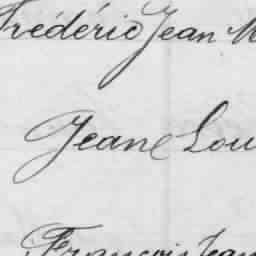 Frédéric Jean M
Jeane Lou
François Jean